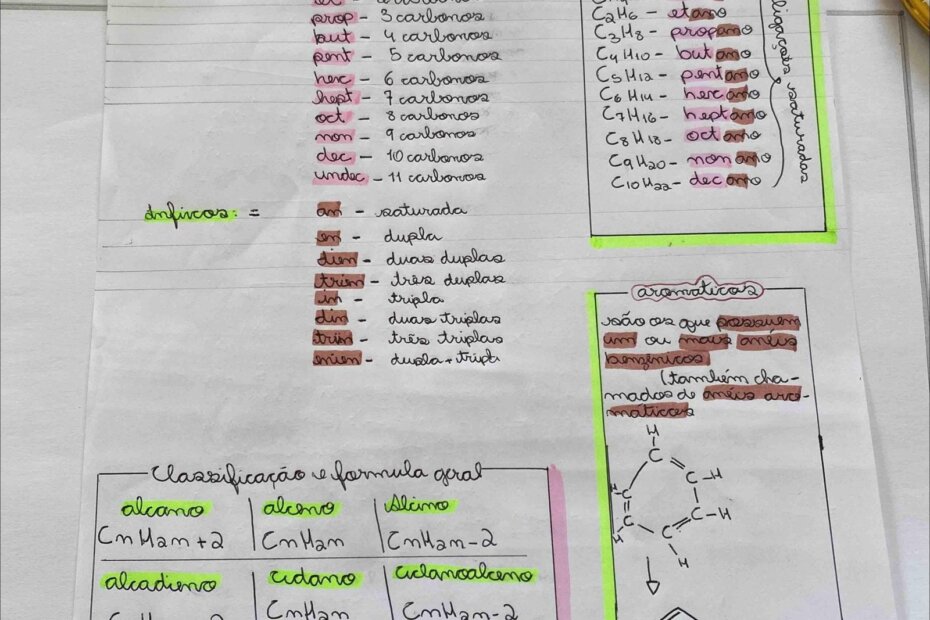 prop - 3 carbonos
but - 4 carbonos
pent - 5 carbonos
hex - 6 carbonos
hept - 7 carbonos
oct - 8 carbonos
non - 9 carbonos
dec - 10 carbonos
undec - 11 carbonos
Infixos: =
an - saturada
en - dupla
dien - duas duplas
trien - três duplas
in - tripla
diin - duas triplas
triin - três triplas
enien - dupla + tripl
C2H6 - etano
C3H8 - propano
C4H10 - butano
C5H12 - pentano
C6H14 - hexano
C7H16 - heptano
C8H18 - octano
C9H20 - nonano
C10H22 - decano
ligações saturadas
aromaticos
são os que possuem
um ou mais anéis
benzênicos
(também cha-
mados de anéis aro-
máticos
H
C
C-H
C-H
C
H
C
C
H
H
Classificação e formula geral
alcano alceno Alcino
CnH2n+2 CnH2n CnH2n-2
alcadieno ciclano ciclanoalceno
CnH2n CnH2n-2